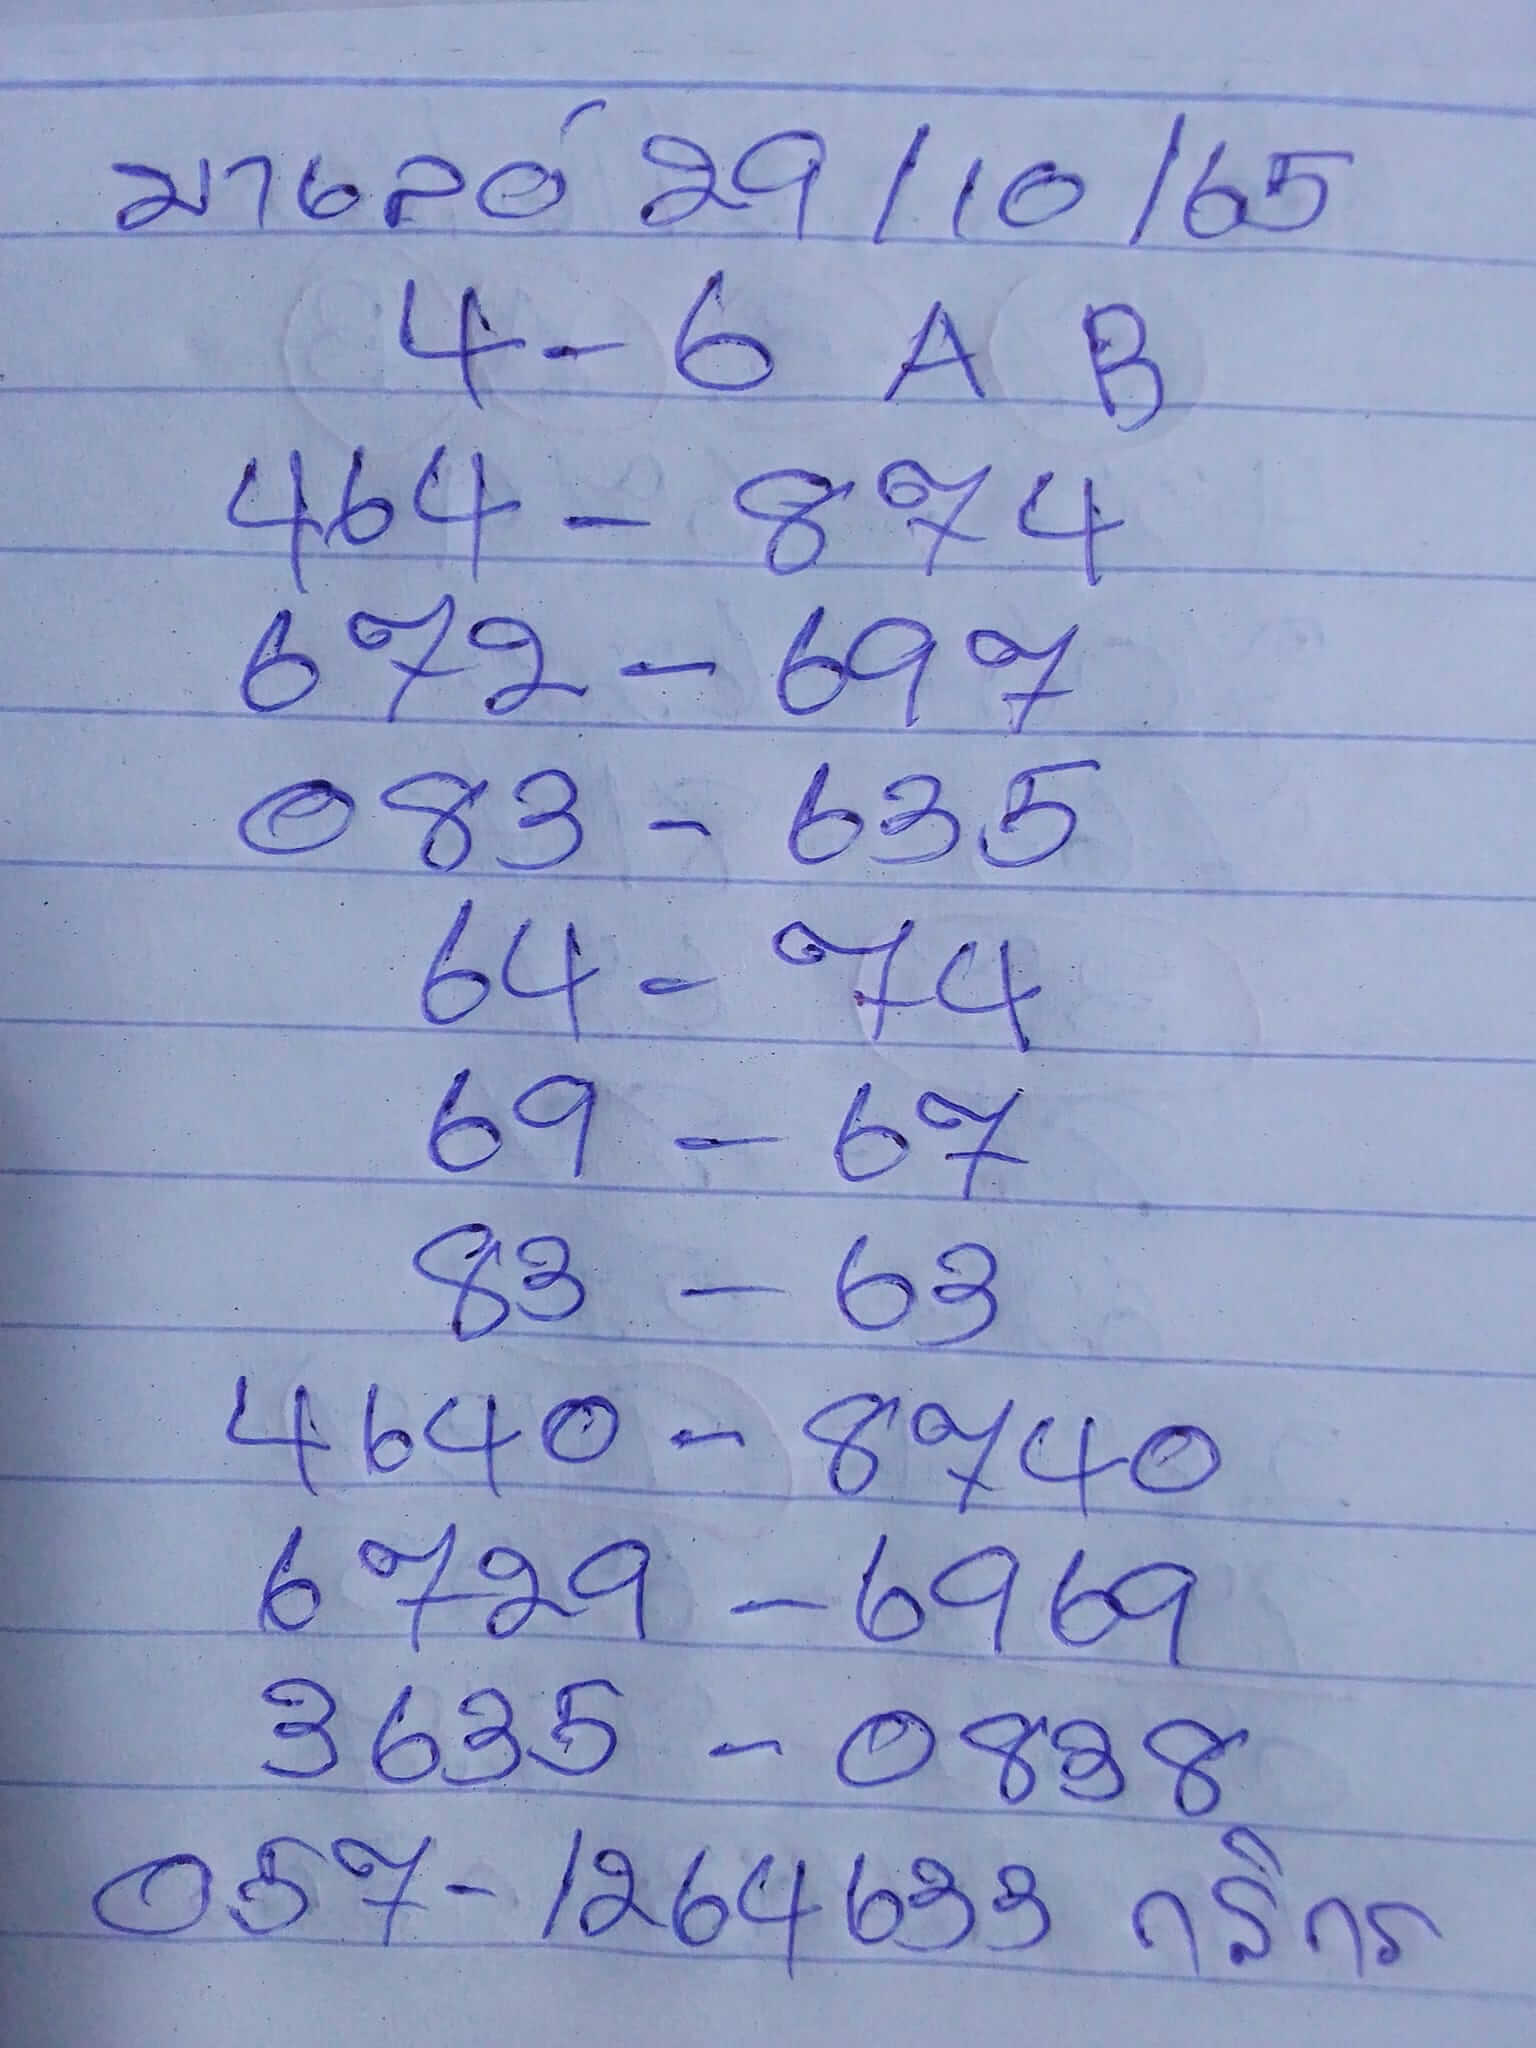 มาเลย์ 29/10/65
4-6 A B
464 - 874
672 - 697
083 - 635
64 - 74
69 - 67
83 - 63
4640 - 8740
6729 - 6969
3635 - 0838
057-1264633 กสิกร